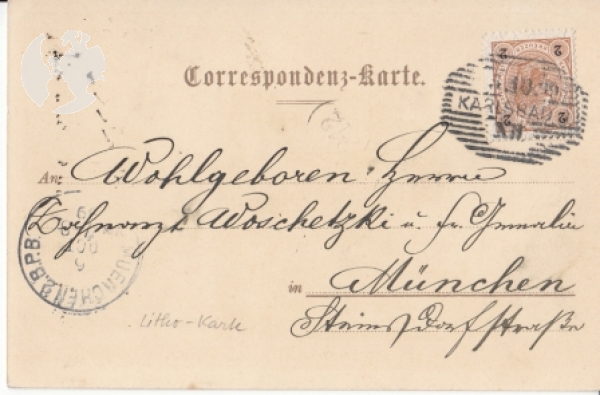 Correspondenz-Karte.
2 2
KARLSBAD
2 2
An Wohlgeboren Herrn
Zahnarzt Woschetzki u. Fr.
in München
Steinsdorfstraße
MUENCHEN 2. B.P.B.
OCT
Litho-Karte